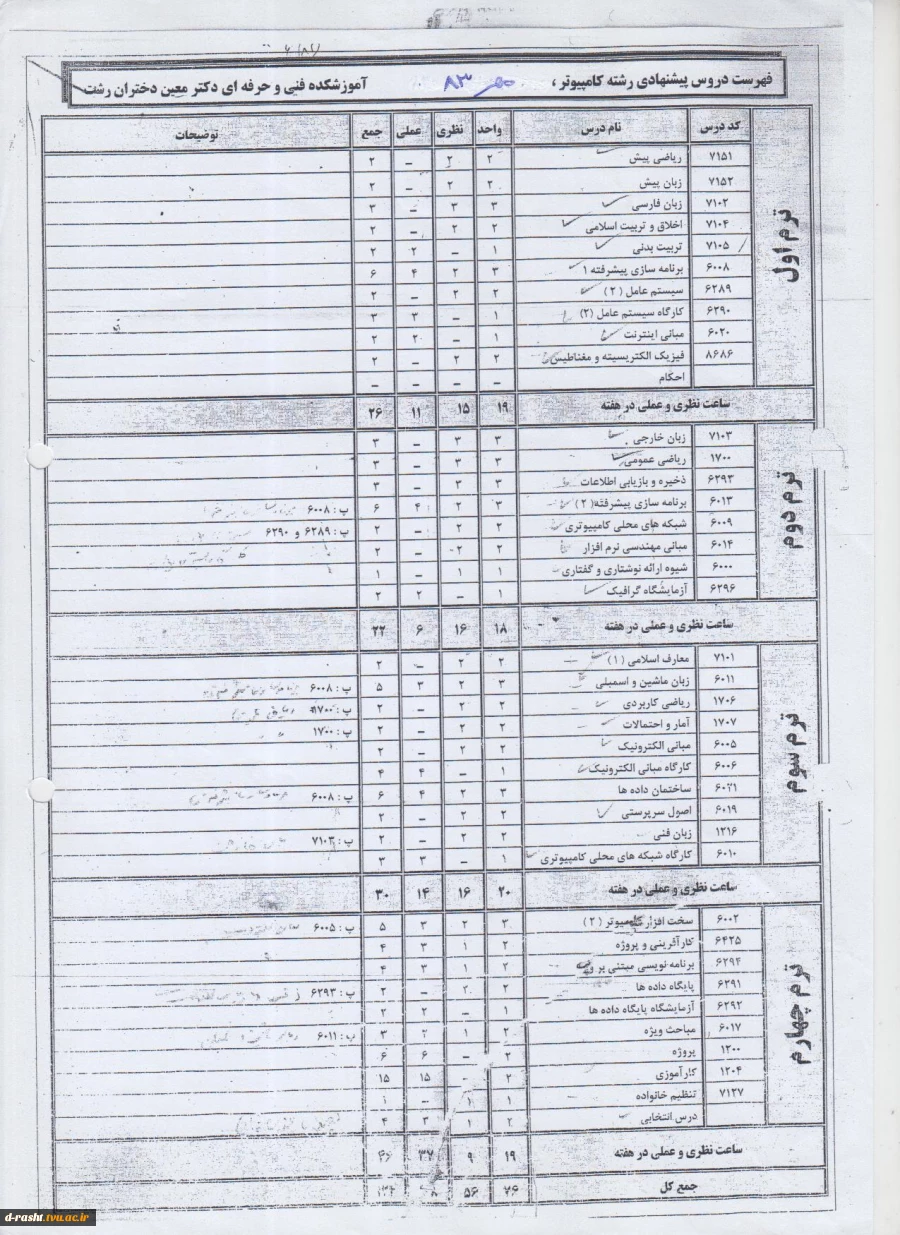 فهرست دروس پیشنهادی رشته کامپیوتر، مهر ۸۳ آموزشکده فنی و حرفه ای دکتر معین دختران رشت
کد درس نام درس واحد نظری عملی جمع توضیحات
ترم اول
۷۱۵۱ ریاضی پیش ۲ ۲ – ۲
۷۱۵۲ زبان پیش ۲ ۲ – ۲
۷۱۰۲ زبان فارسی ۳ ۳ – ۳
۷۱۰۴ اخلاق و تربیت اسلامی ۲ ۲ – ۲
۷۱۰۵ تربیت بدنی ۱ – ۲ ۲
۶۰۰۸ برنامه سازی پیشرفته ۱ ۳ ۲ ۴ ۶
۶۲۸۹ سیستم عامل (۲) ۲ ۲ – ۲
۶۲۹۰ کارگاه سیستم عامل (۲) ۱ – ۳ ۳
۶۰۲۰ مبانی اینترنت ۱ – ۲ ۲
۸۶۸۶ فیزیک الکتریسیته و مغناطیس ۲ ۲ – ۲
احکام – – – –
ساعت نظری و عملی در هفته ۱۹ ۱۵ ۱۱ ۲۶
ترم دوم
۷۱۰۳ زبان خارجی ۳ ۳ – ۳
۱۷۰۰ ریاضی عمومی ۳ ۳ – ۳
۶۲۹۳ ذخیره و بازیابی اطلاعات ۳ ۳ – ۳
۶۰۱۳ برنامه سازی پیشرفته (۲) ۳ ۲ ۴ ۶ پ: ۶۰۰۸
۶۰۰۹ شبکه های محلی کامپیوتری ۲ ۲ – ۲ پ: ۶۲۸۹ و ۶۲۹۰
۶۰۱۴ مبانی مهندسی نرم افزار ۲ ۲ – ۲
۶۰۰۰ شیوه ارائه نوشتاری و گفتاری ۱ ۱ – ۱
۶۲۹۶ آزمایشگاه گرافیک ۱ – ۲ ۲
ساعت نظری و عملی در هفته ۱۸ ۱۶ ۶ ۲۲
ترم سوم
۷۱۰۱ معارف اسلامی (۱) ۲ ۲ – ۲
۶۰۱۱ زبان ماشین و اسمبلی ۳ ۲ ۳ ۵ پ: ۶۰۰۸
۱۷۰۶ ریاضی کاربردی ۲ ۲ – ۲ پ: ۱۷۰۰
۱۷۰۷ آمار و احتمالات ۲ ۲ – ۲ پ: ۱۷۰۰
۶۰۰۵ مبانی الکترونیک ۲ ۲ – ۲
۶۰۰۶ کارگاه مبانی الکترونیک ۱ – ۴ ۴
۶۰۲۱ ساختمان داده ها ۳ ۲ ۴ ۶ پ: ۶۰۰۸
۶۰۱۹ اصول سرپرستی ۲ ۲ – ۲
۱۲۱۶ زبان فنی ۲ ۲ – ۲ پ: ۷۱۰۳
۶۰۱۰ کارگاه شبکه های محلی کامپیوتری ۱ – ۳ ۳
ساعت نظری و عملی در هفته ۲۰ ۱۶ ۱۴ ۳۰
ترم چهارم
۶۰۰۲ سخت افزار کامپیوتر (۲) ۳ ۲ ۳ ۵ پ: ۶۰۰۵
۶۴۲۵ کارآفرینی و پروژه ۲ ۱ ۳ ۴
۶۲۹۴ برنامه نویسی مبتنی بر ۲ ۱ ۳ ۴
۶۲۹۱ پایگاه داده ها ۲ ۲ – ۲ پ: ۶۲۹۳
۶۲۹۲ آزمایشگاه پایگاه داده ها ۱ – ۲ ۲
۶۰۱۷ مباحث ویژه ۲ ۱ ۲ ۳ پ: ۶۰۱۱
۱۲۰۰ پروژه ۲ – ۶ ۶
۱۲۰۴ کارآموزی ۲ – ۱۵ ۱۵
۷۱۲۷ تنظیم خانواده ۱ ۱ – ۱
درس انتخابی ۲ ۱ ۳ ۴
ساعت نظری و عملی در هفته ۱۹ ۹ ۳۷ ۴۶
جمع کل ۷۶ ۵۶
d-rasht.tvu.ac.ir